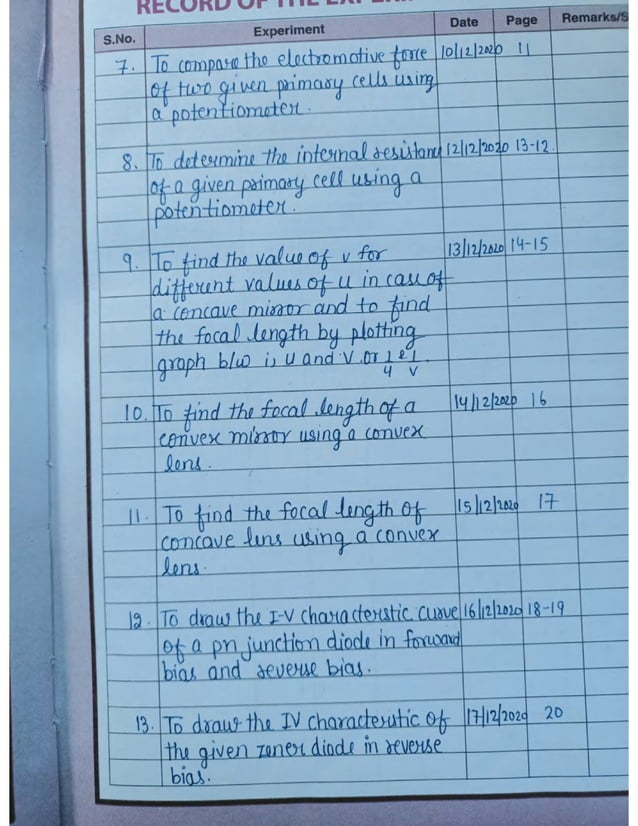 RECORD OF THE EXPERI
S.No. Experiment Date Page Remarks/S
7. To compare the electromotive force 10/12/2020 11
of two given primary cells using
a potentiometer.
8. To determine the internal resistance 12/12/2020 13-12.
of a given primary cell using a
potentiometer.
9. To find the value of v for 13/12/2020 14-15
different values of u in case of
a concave mirror and to find
the focal length by plotting
graph b/w is u and v or 1/u & 1/v.
10. To find the focal length of a 14/12/2020 16
convex mirror using a convex
lens.
11. To find the focal length of 15/12/2020 17
concave lens using a convex
lens.
12. To draw the I-V characterstic curve 16/12/2020 18-19
of a pn junction diode in forward
bias and reverse bias.
13. To draw the IV characterstic of 17/12/2020 20
the given zener diode in reverse
bias.